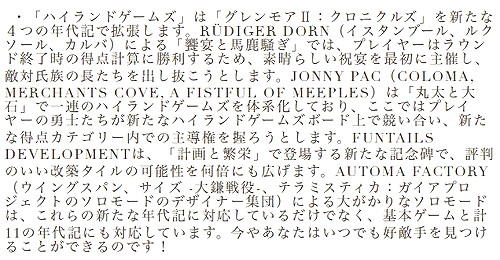 ・「ハイランドゲームズ」は「グレンモアⅡ：クロニクルズ」を新たな
４つの年代記で拡張します。RÜDIGER DORN（イスタンブール、ルク
ソール、カルバ）による「饗宴と馬鹿騒ぎ」では、プレイヤーはラウン
ド終了時の得点計算に勝利するため、素晴らしい祝宴を最初に主催し、
敵対氏族の長たちを出し抜こうとします。JONNY PAC（COLOMA,
MERCHANTS COVE, A FISTFUL OF MEEPLES）は「丸太と大
石」で一連のハイランドゲームズを体系化しており、ここではプレイ
ヤーの勇士たちが新たなハイランドゲームズボード上で競い合い、新た
な得点カテゴリー内での主導権を握ろうとします。FUNTAILS
DEVELOPMENTは、「計画と繁栄」で登場する新たな記念碑で、評判
のいい改築タイルの可能性を何倍にも広げます。AUTOMA FACTORY
（ウイングスパン、サイズ -大鎌戦役-、テラミスティカ：ガイアプロ
ジェクトのソロモードのデザイナー集団）による大がかりなソロモード
は、これらの新たな年代記に対応しているだけでなく、基本ゲームと計
11の年代記にも対応しています。今やあなたはいつでも好敵手を見つけ
ることができるのです！